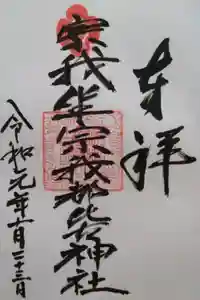 奉拝
宗我坐宗我都比古神社
令和元年十一月二十三日